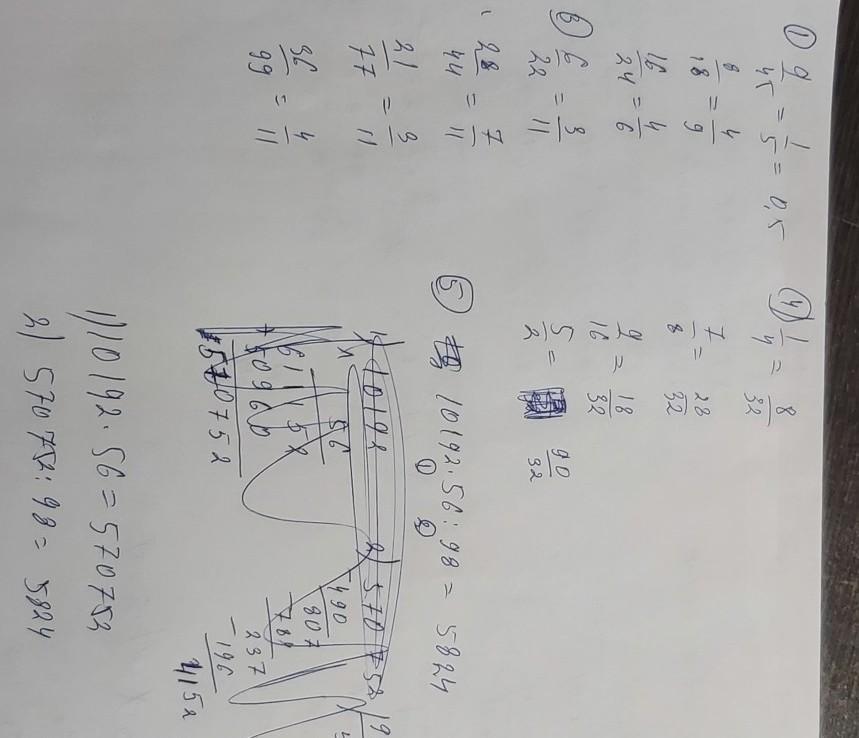 ① 9/45 = 1/5 = 0,5
8/18 = 4/9
16/24 = 4/6
③ 6/22 = 3/11
28/44 = 7/11
21/77 = 3/11
36/99 = 4/11
④ 1/4 = 8/32
7/8 = 28/32
9/16 = 18/32
5/2 = 90/32
⑤ 10192 · 56 : 98 = 5824
① ②
10192
56
61152
+ 50960
570752
2) 570752
-490
807
-784
237
-196
4152
1) 10192 · 56 = 570752
2) 570752 : 98 = 5824